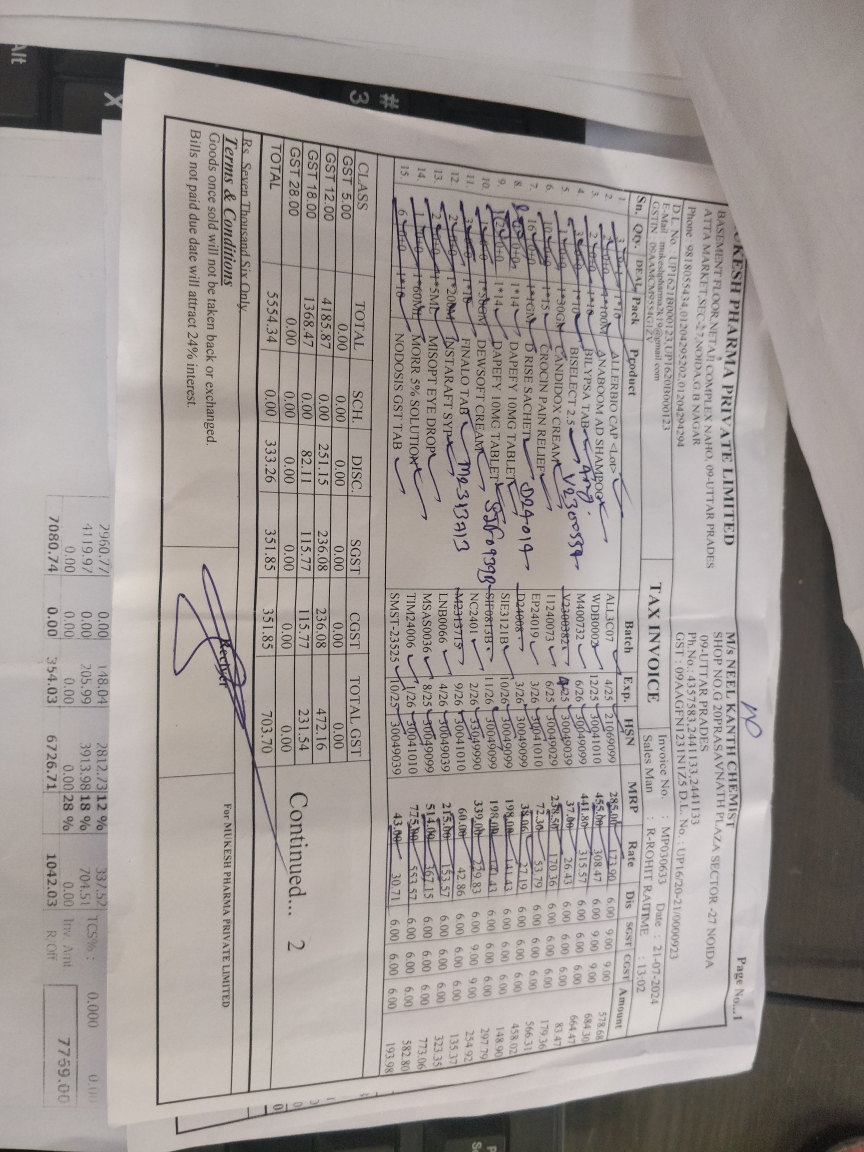 UKESH PHARMA PRIVATE LIMITED
BASEMENT FLOOR, NETAJI COMPLEX NAHO, 09-UTTAR PRADES
ATTA MARKET,SEC-27,NOIDA,G B NAGAR
Phone 9818055434,01204295202,01204294294
D.L. No. UP1621B000123,UP1620B000123
E-Mail mukeshpharma2k19@gmail.com
TAX INVOICE
Page No...1
M/s NEEL KANTH CHEMIST
SHOP NO.G 20PRASAVNATH PLAZA SECTOR -27 NOIDA
09-UTTAR PRADES
Ph.No.: 4357583,2441133,2441133
GST : 09AAGFN1231N1Z5 D.L. No.: UP16/20-21/0000923
Invoice No. : MP030633 Date : 21-07-2024
Sales Man : R-ROHIT RAI TIME : 13:02
Sn. Qty. DEAL Pack Product Batch Exp. HSN MRP Rate Dis SGST CGST Amount
1. 1*10 ALLERBIO CAP <Lot> ALL3C07 4/25 21069099 285.00 173.90 6.00 9.00 9.00 578.68
2. 1*100M ANABOOM AD SHAMPOO WDB0002 12/25 30041010 455.00 308.47 6.00 9.00 9.00 684.30
3. 1*10 BILYPSA TAB M400732 6/26 30049099 441.80 315.57 6.00 6.00 6.00 664.47
4. 1*10 BISELECT 2.5 V2300382 30049039 37.00 26.43 6.00 6.00 6.00 83.47
V2300559
5. 1*30GM CANDIDOX CREAM 11240073 6/25 30049029 238.50 170.36 6.00 6.00 6.00 179.36
6. 1*15 CROCIN PAIN RELIEF EP24019 3/26 30041010 72.30 53.79 6.00 6.00 6.00 566.31
7. 1*1GM D RISE SACHET D24008 3/26 30049099 38.06 27.19 6.00 6.00 6.00 458.02
D24019
8. 1*14 DAPEFY 10MG TABLET SIE3121B 10/26 30049099 198.00 141.43 6.00 6.00 6.00 148.90
9. 1*14 DAPEFY 10MG TABLET SIF0873B 11/26 30049099 198.00 141.43 6.00 6.00 6.00 297.79
10. 1*50GM DEWSOFT CREAM NC2401 2/26 33049990 339.00 6.00 9.00 9.00 254.92
11. 1*10 FINALO TAB M2313715 9/26 30041010 60.00 42.86 6.00 6.00 6.00 135.37
12. 1*200ML INSTARAFT SYP LNB0066 4/26 30049039 215.00 153.57 6.00 6.00 6.00 323.35
13. 1*5ML MISOPT EYE DROP MSAS0036 8/25 30049099 514.00 367.15 6.00 6.00 6.00 773.06
14. 1*60ML MORR 5% SOLUTION TIM24006 1/26 30041010 775.00 553.57 6.00 6.00 6.00 582.80
15. 1*10 NODOSIS GST TAB SMST-23525 10/25 30049039 43.00 30.71 6.00 6.00 6.00 193.98
CLASS TOTAL SCH. DISC. SGST CGST TOTAL GST
GST 5.00 0.00 0.00 0.00 0.00 0.00 0.00
GST 12.00 4185.87 0.00 251.15 236.08 236.08 472.16
GST 18.00 1368.47 0.00 82.11 115.77 115.77 231.54
GST 28.00 0.00 0.00 0.00 0.00 0.00 0.00
TOTAL 5554.34 0.00 333.26 351.85 351.85 703.70
Continued... 2
Rs. Seven Thousand Six Only
Terms & Conditions
Goods once sold will not be taken back or exchanged.
Bills not paid due date will attract 24% interest.
Reciver
For MUKESH PHARMA PRIVATE LIMITED
2960.77 0.00 148.04 2812.73 12 % 337.52 TCS% : 0.000 0.00
4119.97 0.00 205.99 3913.98 18 % 704.51
0.00 0.00 0.00 0.00 28 % 0.00 Inv Amt
7080.74 0.00 354.03 6726.71 1042.03 R.Off 7759.00
Alt
X
#
3